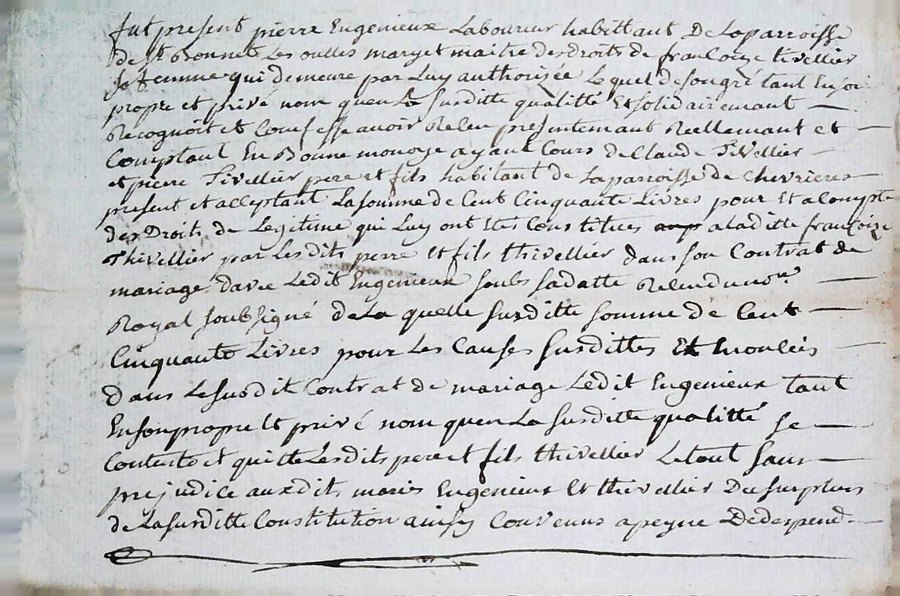 fut present pierre Eugenieux Laboureur habittant De Laparroisse
de st Bonnet Les oulles mary et maitre des droits de francoize tivellier
sa femme qui demeure par Luy authorizée Lequel de son gré tant En son
propre et privé nom quen La Susditte qualitté Et solidairemant
Recognoit et Confesse avoir Receu presentemant Reellemant et
Comptant En Bonne monoye ayant Cours de Claude Tivellier
et pierre Tivellier pere et fils habitant de Laparroisse de Chevrieres
present et acceptant La somme de Cent Cinquante Livres pour Et a Compte
des Droits de Legitime qui Luy ont Etes Constitues a laditte francoize
Thivellier par Lesdits perre et fils thivellier dans son Contrat de
mariage davec Ledit Eugenieux soubs sa datte Receu du nore
Royal soubsigné de La quelle susditte somme de Cent
Cinquante Livres pour Les Causes susdittes Et
dans Le susdit Contrat de mariage Ledit Eugenieux tant
En son propre Et privé nom quen La susditte qualitté se
Contente et quitte Lesdits pere et fils thivellier Le tout sans
prejudice auxdits maries Eugenieux Et thivellier Du surplus
de La susditte Constitution ainsy Convenus a peyne De despend